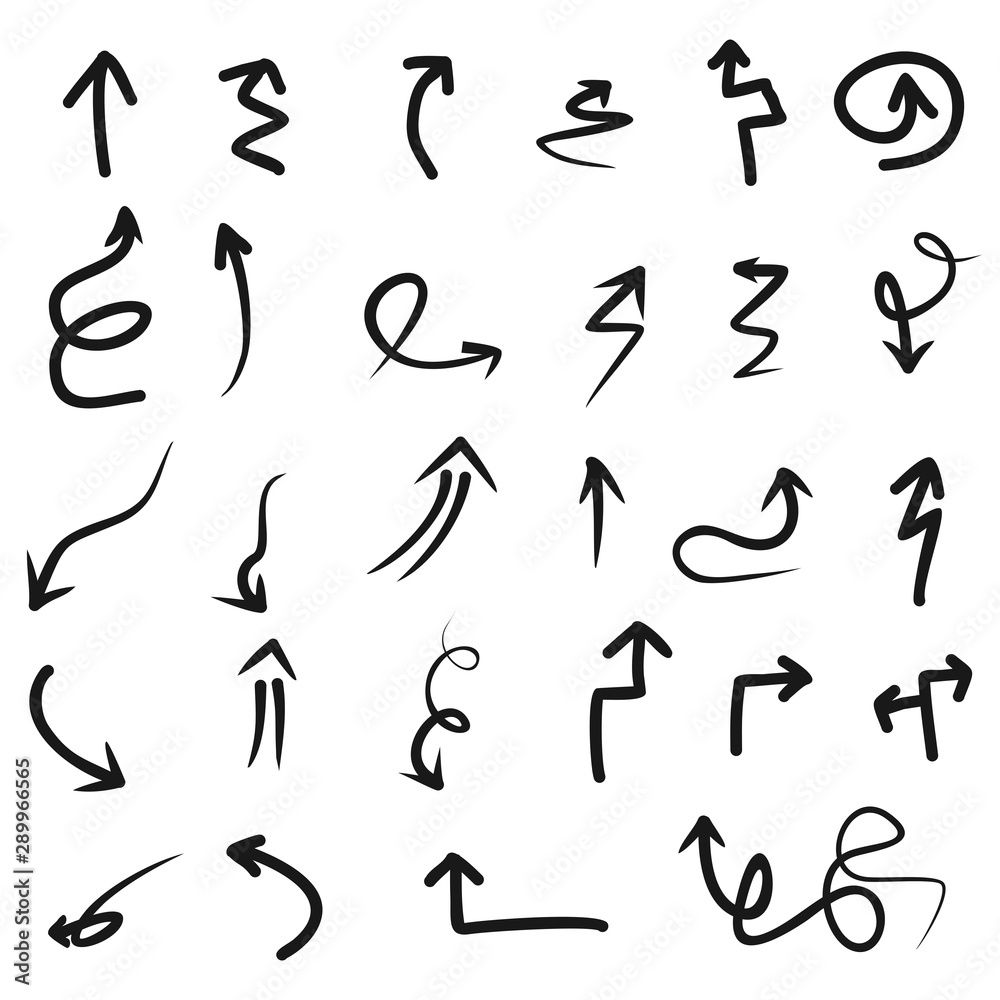 Adobe Stock | #289966565